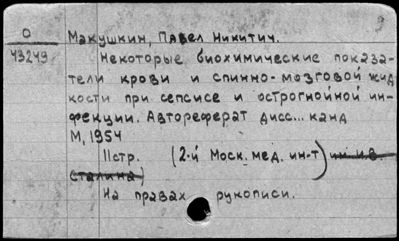 О
43243
Макушкин, Павел Никитич.
Некоторые биохимические показа-
тели крови и спинно-мозговой жид
кости при сепсисе и острогнойной ин-
фекции. Автореферат дисс... канд
М, 1954
11стр. (2-й Моск. мед. ин-т) им. И.В.
Сталина)
На правах рукописи.